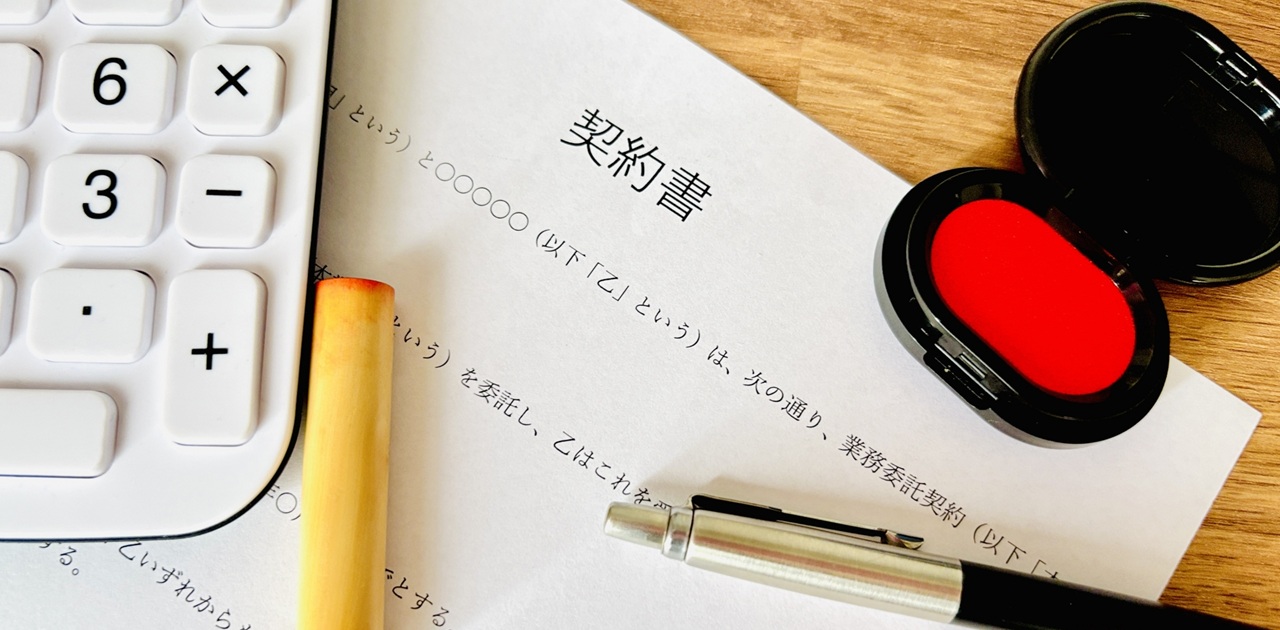 6 ×
3 −
. +
契約書
」という）と〇〇〇〇〇（以下「乙」という）は、次の通り、業務委託契約（以下「
いう）を委託し、乙はこれを
乙いずれから
とする。
する。